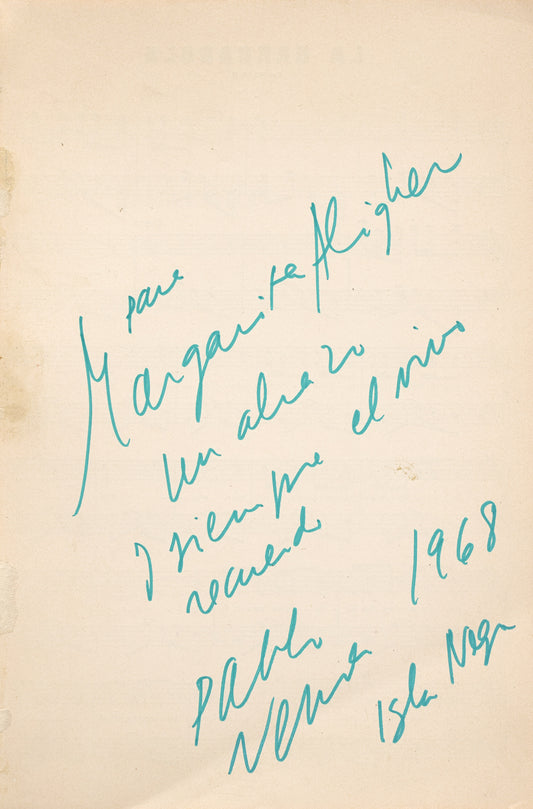 para
Margarita Aligher
Un abrazo
y siempre el vivo
recuerdo
Pablo
Neruda
1968
Isla Negra